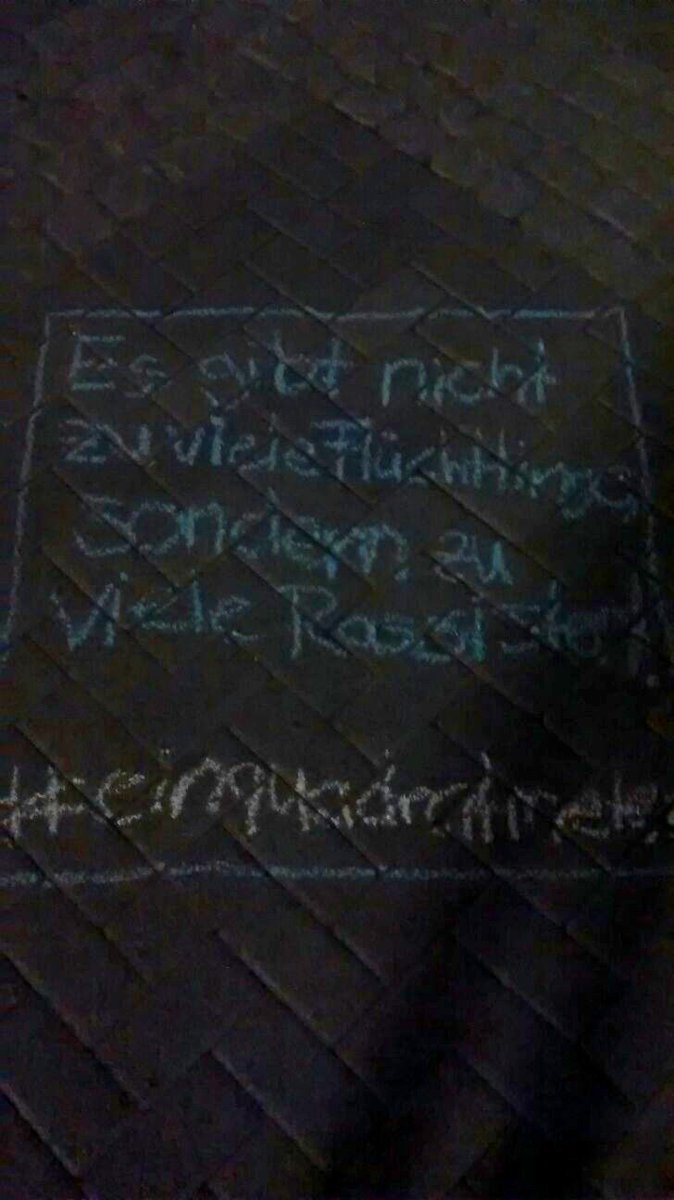 Es gibt nicht
zu viele Flüchtlinge
sondern zu
viele Rassisten!
#einquadratmeter